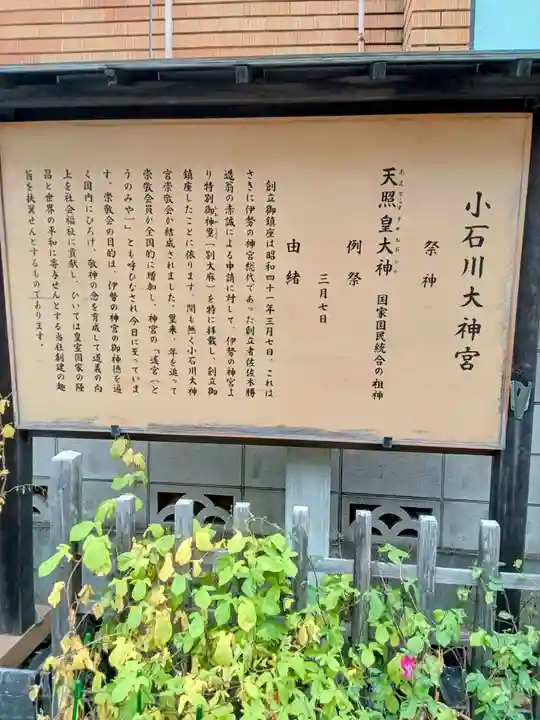 小石川大神宮
祭神
あまてらすすめおおみかみ
天照皇大神 国家国民統合の祖神
例祭
三月七日
由緒
創立御鎮座は昭和四十一年三月七日、これは
さきに伊勢の神宮総代であった創立者佐佐木勝
造翁の赤誠による申請に対して、伊勢の神宮よ
り特別御神璽(別大麻)を特に拝戴し、創立御
鎮座したことに依ります。間も無く小石川大神
宮崇敬会が結成されました。爾来、年を追って
崇敬会員が全国的に増加し、神宮の「遙宮(と
うのみや)」とも呼びなされ今日に至っていま
す。崇敬会の目的は、伊勢の神宮の御神徳を遍
く国内にひろげ、敬神の念を育成して道義の向
上を社会福祉に貢献し、ひいては皇室国家の隆
昌と世界の平和に寄与せんとする当社創建の趣
旨を扶翼せんとするものであります。